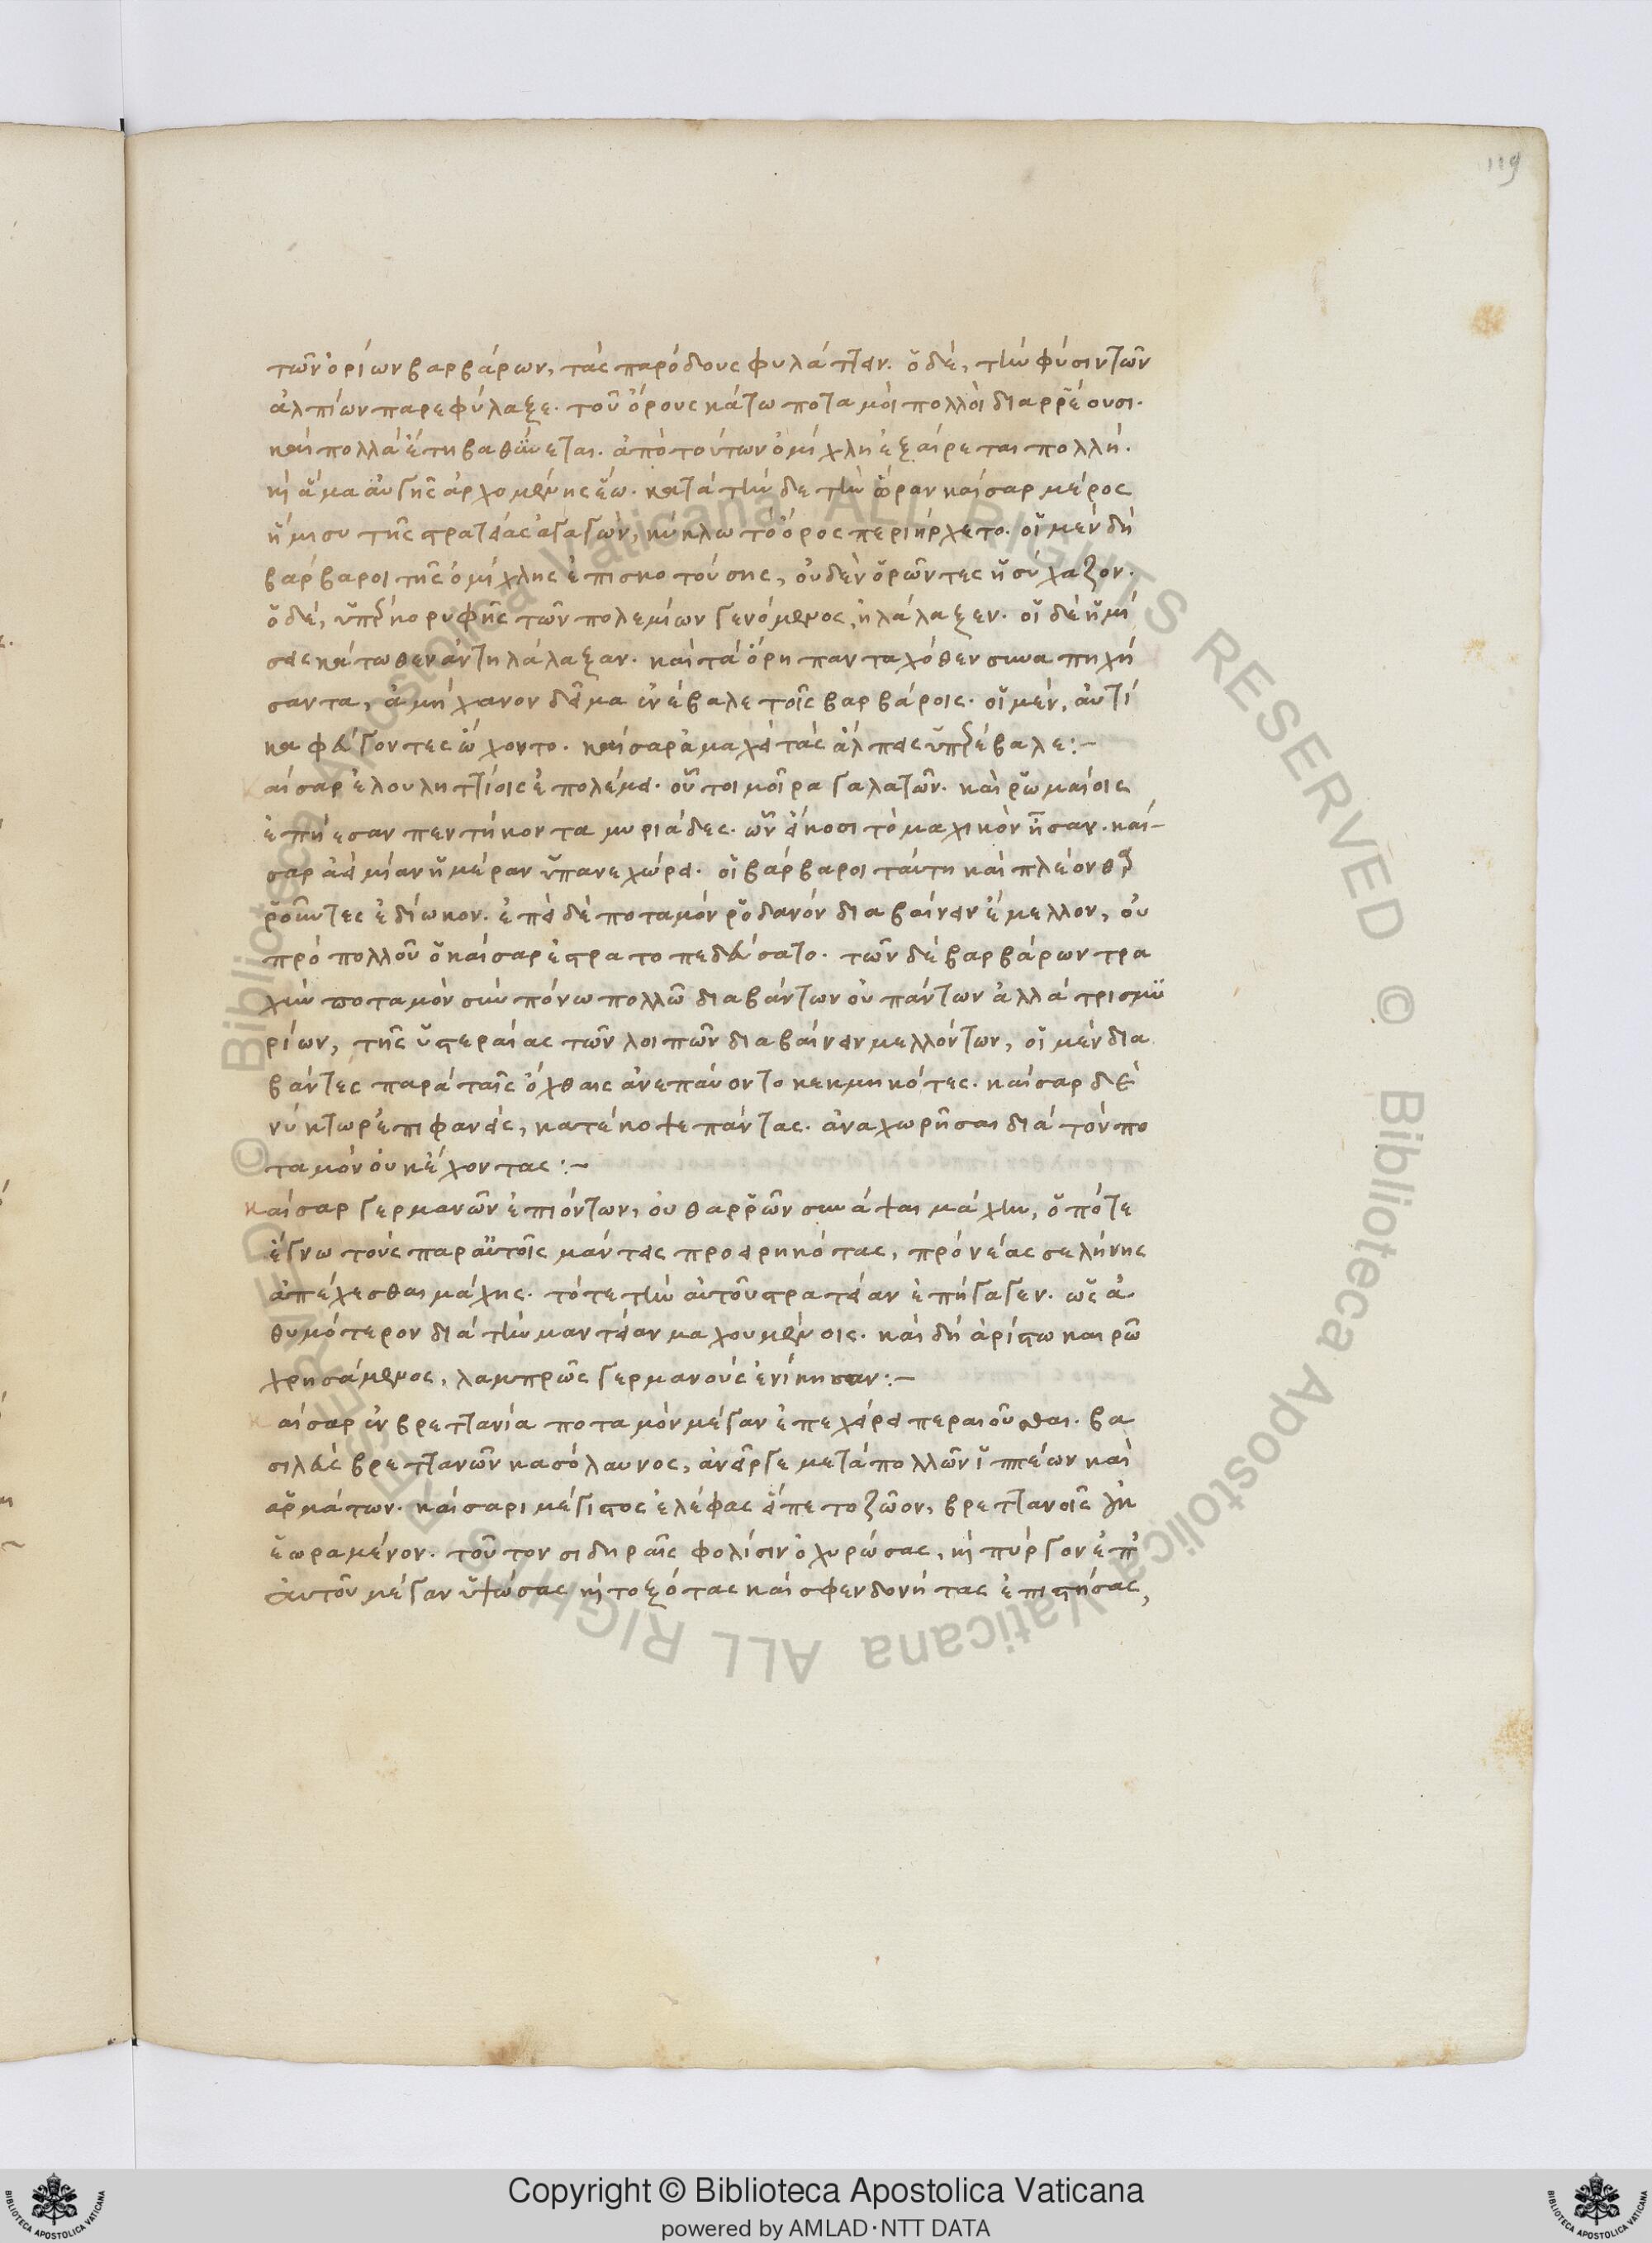 119
τῶν ὁρίων βαρβάρων, τὰς παρόδους φυλάττειν. ὁ δὲ, τὴν φύσιν τῶν
ἀλπίων παρεφύλαξε. τοῦ ὄρους κάτω ποταμοὶ πολλοὶ διαρρέουσι.
καὶ πολλὰ ἔτη βαθύνεται. ἀπὸ τούτων ὁμίχλη ἐξαίρεται πολλὴ.
κὶ ἅμα αὐγῆς ἀρχομένης ἕω. κατὰ τὴν δε τὴν ὥραν καῖσαρ μέρος
ἥμισυ τῆς στρατείας ἀγαγὼν, κύκλω τὸ ὄρος περιήρχετο. οἱ μὲν δὴ
βάρβαροι τῆς ὁμίχλης ἐπισκοτούσης, οὐδὲν ὁρῶντες ἡσύχαζον.
ὁ δὲ, ὑπὲρ κορυφῆς τῶν πολεμίων γενόμενος, ἠλάλαξεν. οἱ δὲ ἡμί
σεις κάτωθεν ἀντηλάλαξαν. καὶ τὰ ὄρη πανταχόθεν συναπηχή
σαντα, ἀμήχανον δεῖμα ἐνέβαλε τοῖς βαρβάροις. οἱ μὲν, αὐτί
κα φεύγοντες ὤχοντο. καῖσαρ ἀμαχεὶ τὰς ἄλπεις ὑπερέβαλε:~
αῖσαρ ἐλουλητ͂τίοις ἐπολέμει. οὗτοι μοῖρα γαλατῶν. καὶ ῥωμαίοις
ἐπήεσαν πεντήκοντα μυριάδες. ὧν εἴκοσι τὸ μαχικὸν ἦσαν. καί-
σαρ ἀεὶ μίαν ἡμέραν ὑπανεχώρει. οἱ βάρβαροι ταύτη καὶ πλέον θαρ
ροῦντες ἐδίωκον. ἐπεὶ δὲ ποταμὸν ῥοδανὸν διαβαίνειν ἔμελλον, οὐ
πρὸ πολλοῦ ὁ καῖσαρ ἐστρατοπεδεύσατο. τῶν δὲ βαρβάρων τρα
χὺν ποταμὸν σὺν πόνω πολλῶ διαβάντων οὐ πάντων ἀλλὰ τρισμυ
ρίων, τῆς ὑστεραίας τῶν λοιπῶν διαβαίνειν μελλόντων, οἱ μὲν δια
βάντες παρὰ ταῖς ὄχθαις ἀνεπαύοντο κεκμηκότες. καῖσαρ δὲ
νύκτωρ ἐπιφανεὶς, κατέκοψε πάντας. ἀναχωρῆσαι διὰ τὸν πο
ταμὸν οὐκ ἔχοντας:~
καῖσαρ γερμανῶν ἐπιόντων, οὐ θαρρῶν συνάψαι μάχην, ὁπότε
ἔγνω τοὺς παρ αὐτοῖς μάντεις προειρηκότας, πρὸ νέας σελήνης
ἀπέχεσθαι μάχης. τότε τὴν αὐτοῦ στρατείαν ἐπήγαγεν. ὡς ἀ
θυμότερον διὰ τὴν μαντείαν μαχουμένοις. καὶ δὴ ἀρίστω καιρῶ
χρησάμενος, λαμπρῶς γερμανοὺς ἐνίκησαν:~
καῖσαρ ἐν βρεττανία ποταμὸν μέγαν ἐπεχείρει περαιοῦσθαι. βα
σιλεὺς βρεττανῶν κασόλαυνος, ἀνεῖργε μετὰ πολλῶν ἱππέων καὶ
ἁρμάτων. καίσαρι μέγιστος ἐλέφας εἵπετο ζῶον, βρεττανοῖς οὐχ
ἑωραμένον. τοῦτον σιδηραῖς φολίσιν ὀχυρώσας, κὶ πύργον ἐπ
αὐτοῦ μέγαν ὑψώσας κὶ τοξότας καὶ σφενδονήτας ἐπιστήσας,
Copyright © Biblioteca Apostolica Vaticana
powered by AMLAD·NTT DATA